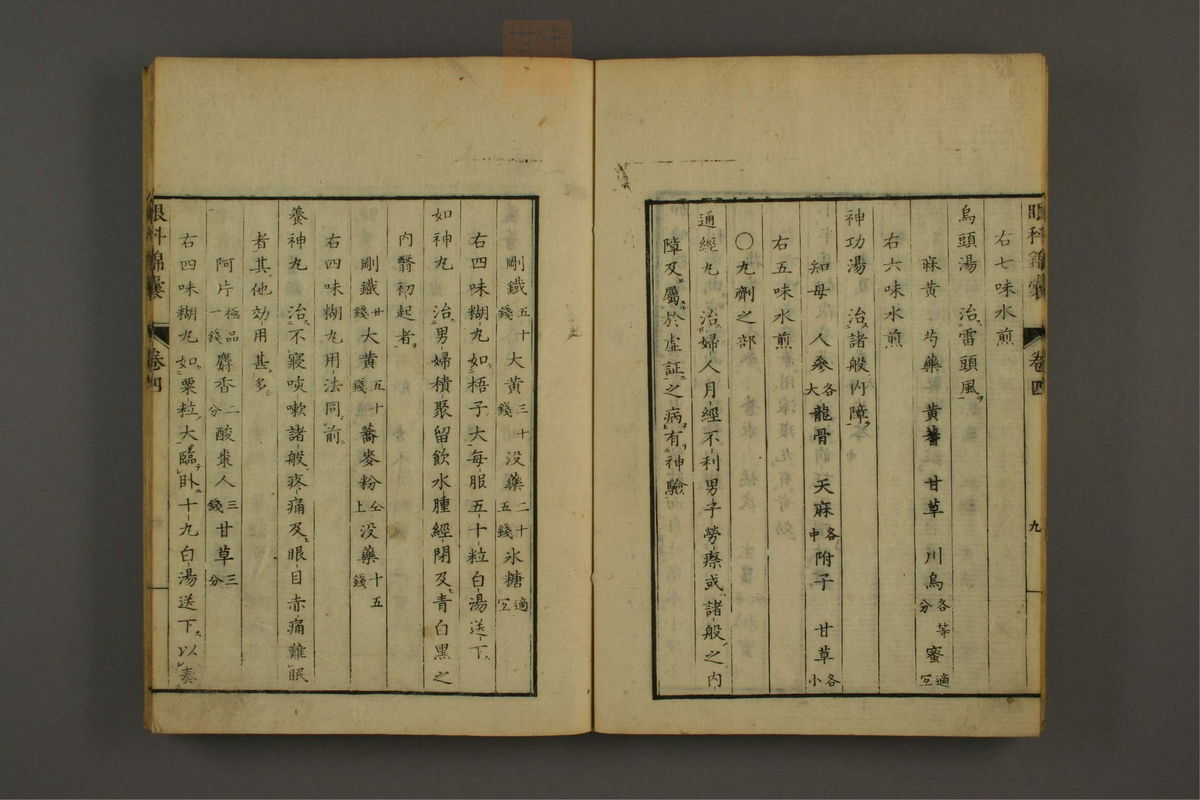 眼科錦囊 卷四 九
右七味水煎
烏頭湯 治雷頭風
麻黄 芍藥 黄蓍 甘草 川烏各等分 蜜適宜
右六味水煎
神功湯 治諸般内障
知母 人參各大 龍骨 天麻各中 附子 甘草各小
右五味水煎
〇丸劑之部
通經丸 治婦人月經不利男子勞瘵或諸般之内
障及屬於虛証之病有神驗
剛鐵五十錢 大黄三十錢 没藥二十五錢 氷糖適宜
右四味糊丸如梧子大每服五十粒白湯送下
如神丸 治男婦積聚留飲水腫經閉及青白黑之
内翳初起者
剛鐵廿錢 大黄五十錢 蕎麥粉仝上 没藥十五錢
右四味糊丸用法同前
養神丸 治不寢咳嗽諸般疼痛及眼目赤痛難眠
者其他効用甚多
阿片極品一錢 麝香二分 酸棗人三錢 甘草三分
右四味糊丸如粟粒大臨臥十丸白湯送下以奏
眼科錦囊 卷四